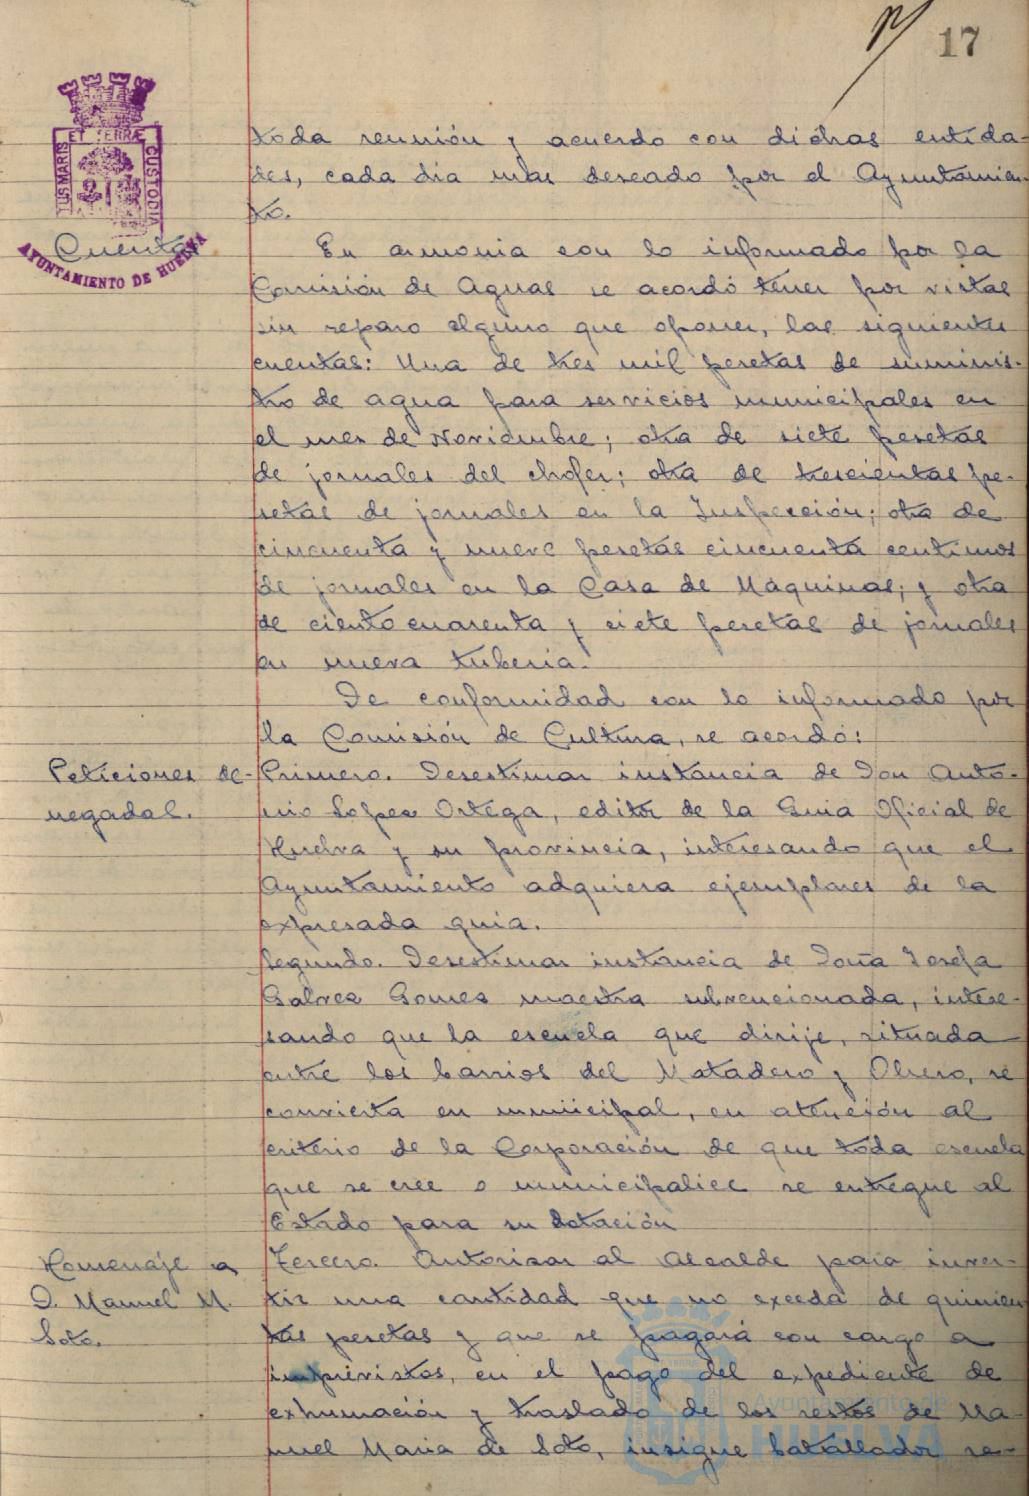 17
toda reunión y acuerdo con dichas entida-
des, cada dia mas deseado por el Ayuntamien-
to.
ET TERRÆ
CUSTODIA
TUS MARIS
AYUNTAMIENTO DE HUELVA
Cuentas
En armonia con lo informado por la
Comisión de Aguas se acordó tener por vistas
sin reparo alguno que oponer, las siguientes
cuentas: Una de tres mil pesetas de suminis-
tro de agua para servicios municipales en
el mes de Noviembre; otra de siete pesetas
de jornales del chofer; otra de trescientas pe-
setas de jornales en la Inspección; otra de
cincuenta y nueve pesetas cincuenta centimos
de jornales en la Casa de Máquinas; y otra
de ciento cuarenta y siete pesetas de jornales
en nueva tuberia.
De conformidad con lo informado por
la Comisión de Cultura, se acordó:
Peticiones de-
negadas.
Primero. Desestimar instancia de Don Anto-
nio Lopez Ortega, editor de la Guia Oficial de
Huelva y su provincia, interesando que el
Ayuntamiento adquiera ejemplares de la
expresada guia.
Segundo. Desestimar instancia de Doña Josefa
Galvez Gomez maestra subvencionada, intere-
sando que la escuela que dirije, situada
entre los barrios del Matadero y Obrero, se
convierta en municipal, en atención al
criterio de la Corporación de que toda escuela
que se cree o municipalice se entregue al
Estado para su dotación
Homenaje a
D. Manuel M.
Soto.
Tercero. Autorizar al Alcalde para inver-
tir una cantidad que no exceda de quinien-
tas pesetas y que se pagará con cargo a
imprevistos, en el pago del expediente de
exhumación y traslado de los restos de Ma-
nuel Maria de Soto, insigne batallador re-
Ayuntamiento de
HUELVA